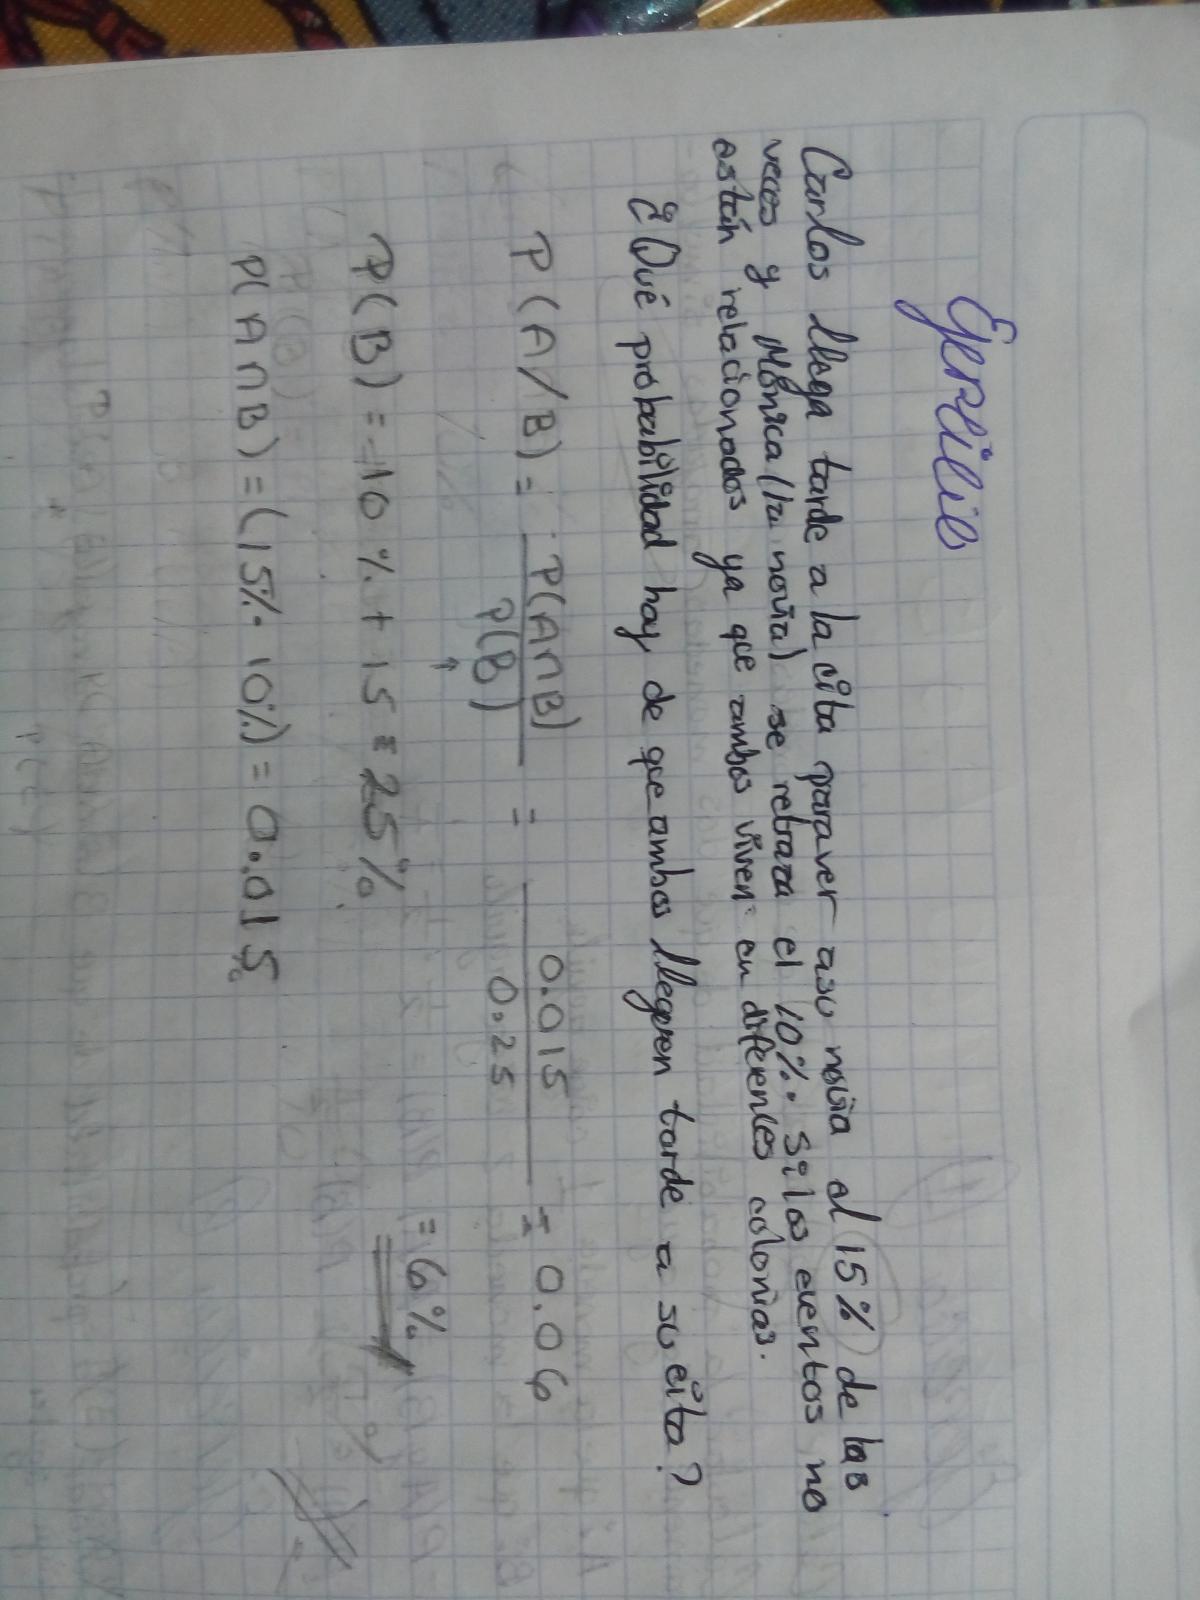 Ejercicio
Carlos llega tarde a la cita para ver a su novia el 15% de las
veces y Mónica (la novia) se retraza el 10%. Si los eventos no
están relacionados ya que ambos viven en diferentes colonias.
¿Qué probabilidad hay de que ambos lleguen tarde a su cita?
P(A/B) = P(A∩B) / P(B) = 0.015 / 0.25 = 0.06
= 6%
P(B) = 10% + 15 = 25%
P(A∩B) = (15%. 10%) = 0.015